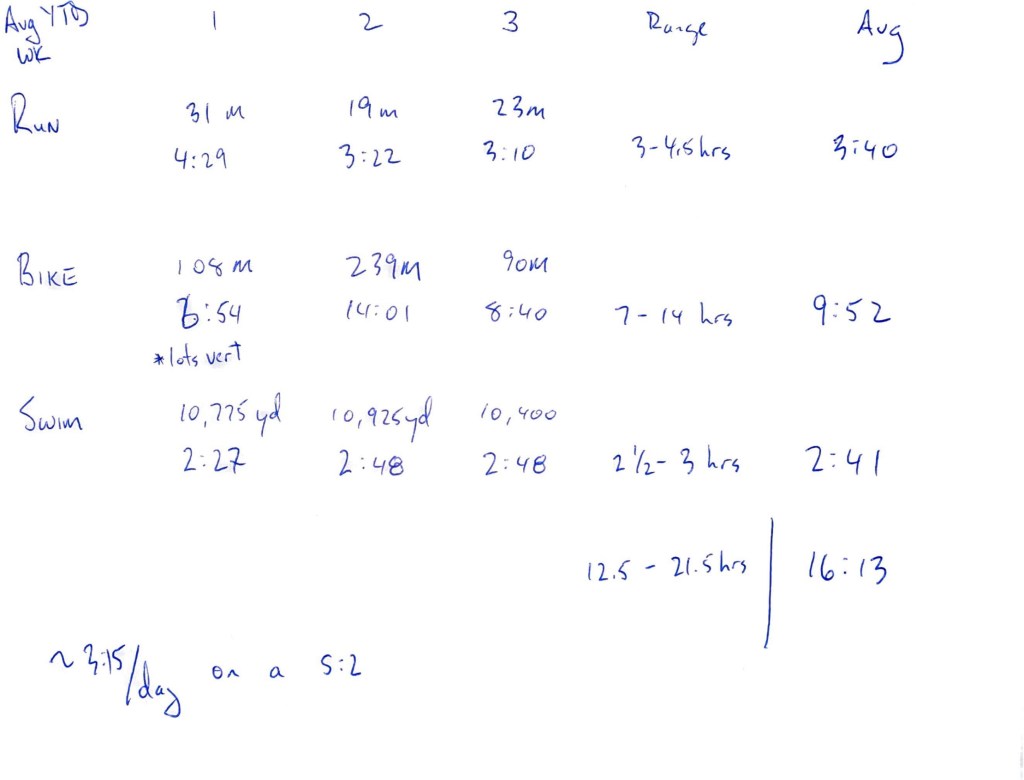 Avg YTD 1 2 3 Range Avg
WK
Run 31 m 19m 23m
4:29 3:22 3:10 3-4.5hrs 3:40
BIKE 108 m 239m 90m
6:54 14:01 8:40 7-14 hrs 9:52
*lots vert
Swim 10,775 yd 10,925yd 10,400
2:27 2:48 2:48 2 1/2-3 hrs 2:41
12.5 - 21.5hrs 16:13
~ 3:15/day on a 5:2